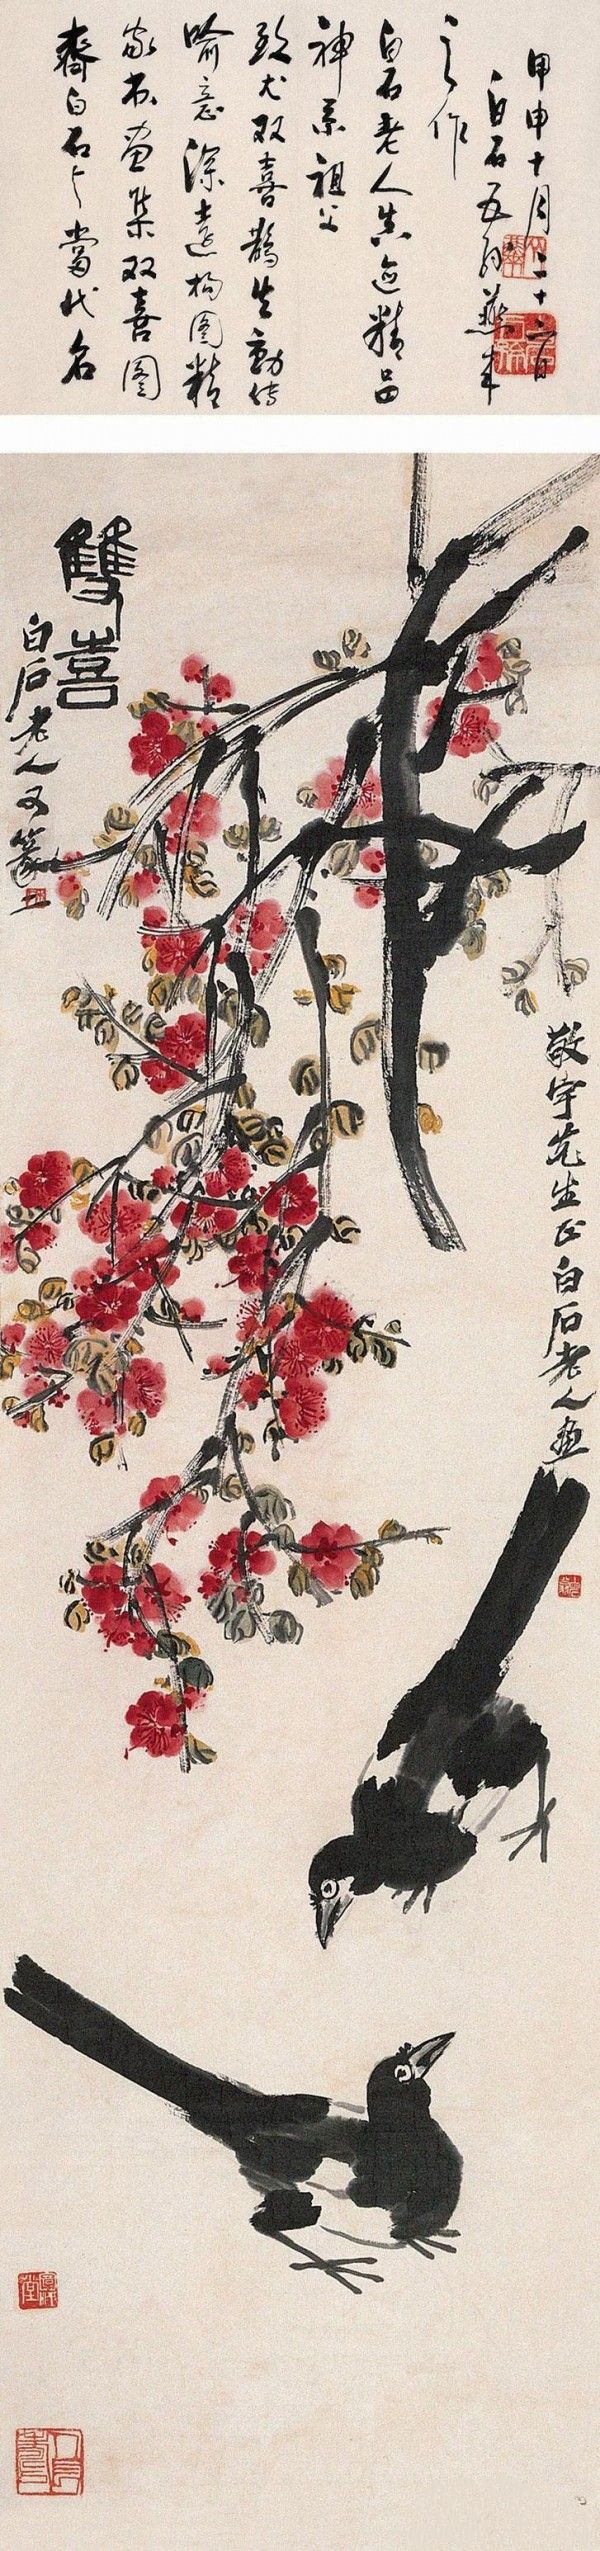 齊白石与當代名
家书画集双喜图
喻意深遠构图精
致尤双喜鵲生動传
神系祖父
白石老人真迹精品
之作
白石五孙燕来
甲申十月二十日
雙喜
白石老人又篆
敬宇先生正白石老人画